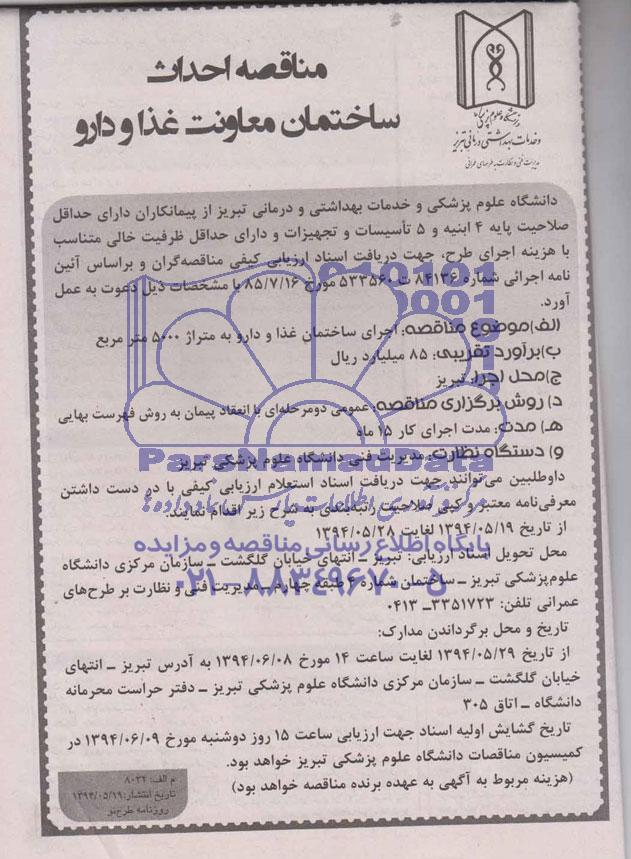 مناقصه احداث
ساختمان معاونت غذا و دارو
دانشگاه علوم پزشکی
و خدمات بهداشتی درمانی تبریز
مدیریت فنی و نظارت به طرحهای عمرانی
دانشگاه علوم پزشکی و خدمات بهداشتی و درمانی تبریز از پیمانکاران دارای حداقل
صلاحیت پایه ۴ ابنیه و ۵ تأسیسات و تجهیزات و دارای حداقل ظرفیت خالی متناسب
با هزینه اجرای طرح، جهت دریافت اسناد ارزیابی کیفی مناقصه‌گران و براساس آئین
نامه اجرائی شماره ۸۴۱۳۶ ت ۵۳۳۵۶۰ مورخ ۸۵/۷/۱۶ با مشخصات ذیل دعوت به عمل
آورد.
الف)موضوع مناقصه: اجرای ساختمان غذا و دارو به متراژ ۵۰۰۰ متر مربع
ب)برآورد تقریبی: ۸۵ میلیارد ریال
ج)محل اجرا: تبریز
د) روش برگزاری مناقصه: عمومی دومرحله‌ای با انعقاد پیمان به روش فهرست بهایی
هـ) مدت: مدت اجرای کار ۱۵ ماه
و) دستگاه نظارت: مدیریت فنی دانشگاه علوم پزشکی تبریز
ParsNamadData
داوطلبین می‌توانند جهت دریافت اسناد استعلام ارزیابی کیفی با در دست داشتن
معرفی‌نامه معتبر و کپی صلاحیت رتبه‌بندی به شرح زیر اقدام نمایند.
از تاریخ ۱۳۹۴/۰۵/۱۹ لغایت ۱۳۹۴/۰۵/۲۸
پایگاه اطلاع رسانی مناقصه و مزایده
محل تحویل اسناد ارزیابی: تبریز ـ انتهای خیابان گلگشت ـ سازمان مرکزی دانشگاه
علوم‌پزشکی تبریز ـ ساختمان شماره ۴ طبقه چهارم ـ مدیریت فنی و نظارت بر طرح‌های
۰۲۱-۸۸۳۴۹۶۷۰-۵
عمرانی تلفن: ۳۳۵۱۷۲۳ـ ۰۴۱۳
تاریخ و محل برگرداندن مدارک:
از تاریخ ۱۳۹۴/۰۵/۲۹ لغایت ساعت ۱۴ مورخ ۱۳۹۴/۰۶/۰۸ به آدرس تبریز ـ انتهای
خیابان گلگشت ـ سازمان مرکزی دانشگاه علوم پزشکی تبریز ـ دفتر حراست محرمانه
دانشگاه ـ اتاق ۳۰۵
تاریخ گشایش اولیه اسناد جهت ارزیابی ساعت ۱۵ روز دوشنبه مورخ ۱۳۹۴/۰۶/۰۹ در
کمیسیون مناقصات دانشگاه علوم پزشکی تبریز خواهد بود.
(هزینه مربوط به آگهی به عهده برنده مناقصه خواهد بود)
م الف: ۸۰۳۲
تاریخ انتشار:۱۳۹۴/۰۵/۱۹
روزنامه طرح‌نو